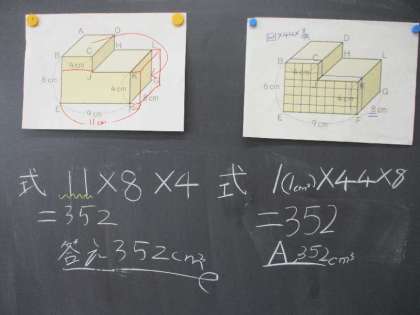 A D
B C H
4cm
J K
6cm 4cm
8cm
E F
9cm
11cm
式 11×8×4
=352
答え352cm³
回×44×8
D
B C H L
6cm 4cm G
8cm
E 9cm F
式 1(1cm³)×44×8
=352
A 352cm³